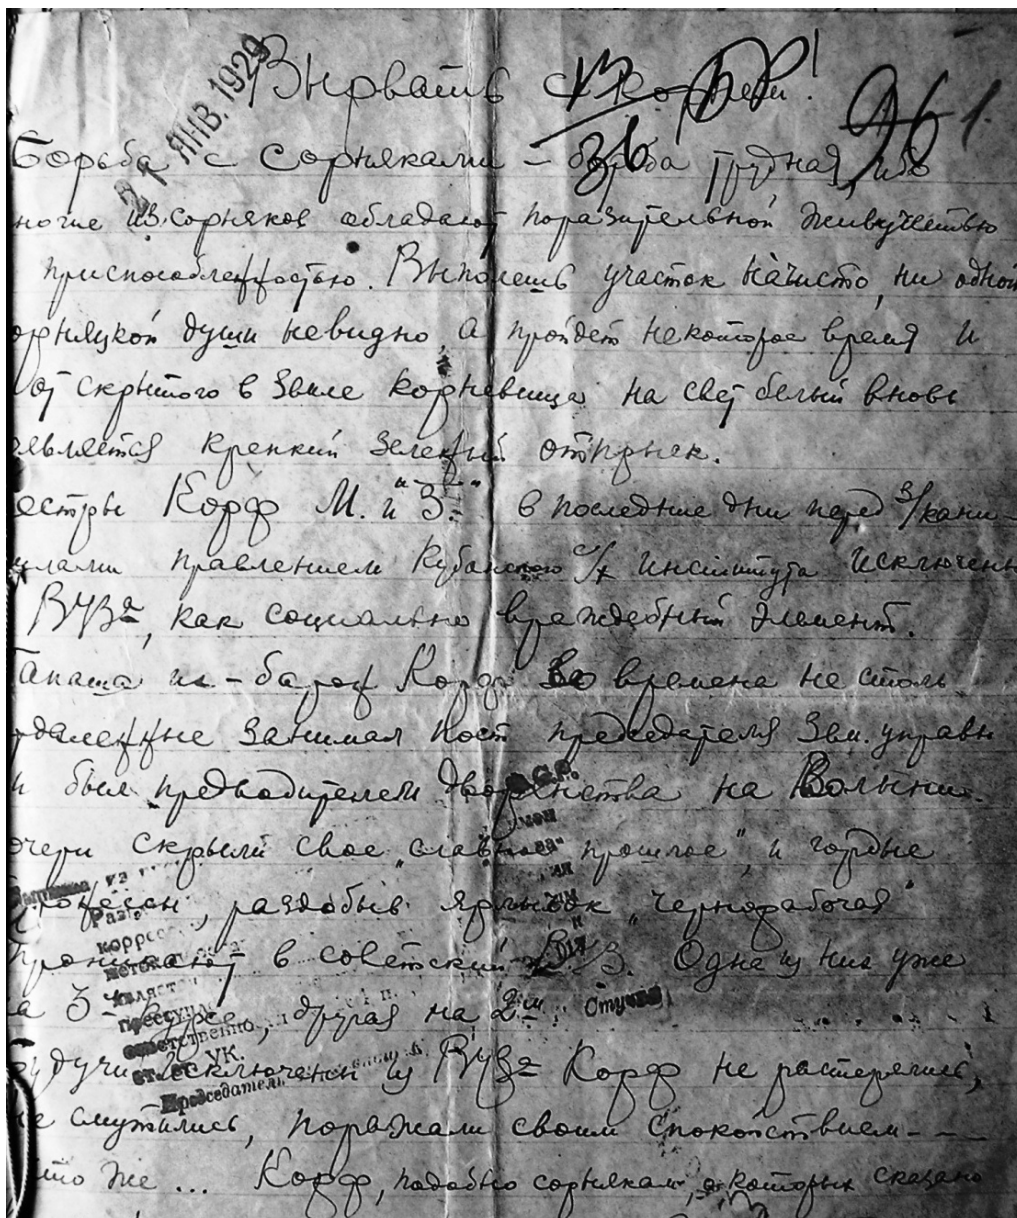 Вырвать с корнем!
21 ЯНВ. 1929
36
961.
Борьба с сорняками – борьба трудная, ибо
многие из сорняков обладают поразительной живучестью
приспособленностью. Выполешь участок начисто, ни одной
орняцкой души невидно, а пройдет некоторое время и
от скрытого в земле корневища на свет белый вновь
является крепкий зеленый отпрыск.
естры Корф М. и "З." в последние дни перед з/кани-
улами правлением Кубанского с/х института исключены
ВУЗа, как социально враждебный элемент.
Папаша их – барон Корф во времена не столь
отдаленные занимал пост председателя Зем. управы
и был предводителем дворянства на Волыни.
очери скрыли свое "славное прошлое", и гордые
раздобыв ярлычок "чернорабочая"
проникают в советский ВУЗ. Одна из них уже
на 3 – курсе, другая на 2м
Будучи исключены из ВУЗа Корф не растерялись,
не смутились, поражали своим спокойствием – –
что же ... Корф, подобно сорнякам, о которых сказано
Р.
корресп
является
преступ
ответственность
ст. УК.
Председатель
С.С.Р.
Случай